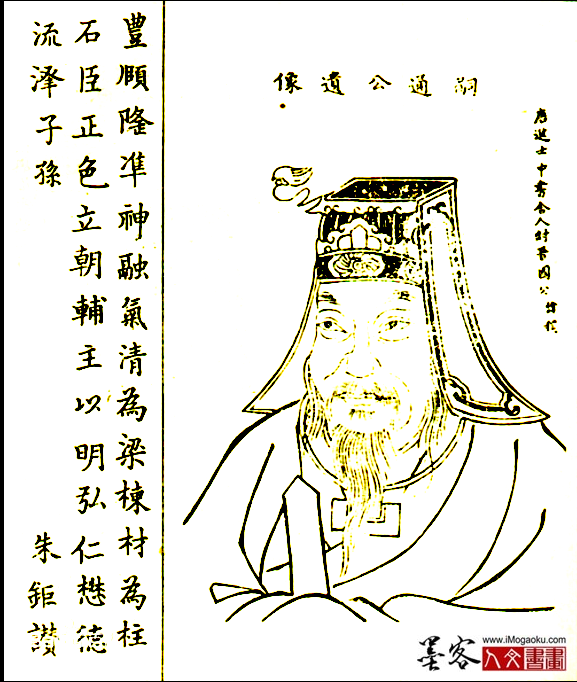 嗣通公遺像
唐進士中書舍人封晉國公諱
豐頤隆凖神融氣清為梁棟材為柱
石臣正色立朝輔主以明弘仁懋德
流澤子孫 朱鉅讚
墨客
www.iMogaoku.com
人文書畫